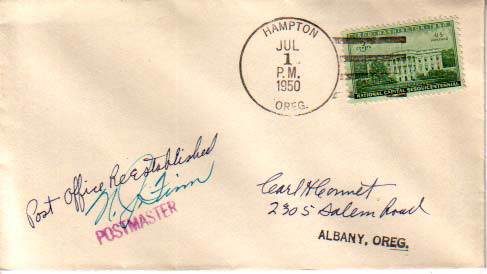 HAMPTON
JUL
1
P.M.
1950
OREG.
WASHINGTON 1950
3¢
U.S.
POSTAGE
NATIONAL CAPITAL SESQUICENTENNIAL
Post Office ReEstablished
POSTMASTER
Carl H Connet.
2305 Salem Road
ALBANY, OREG.